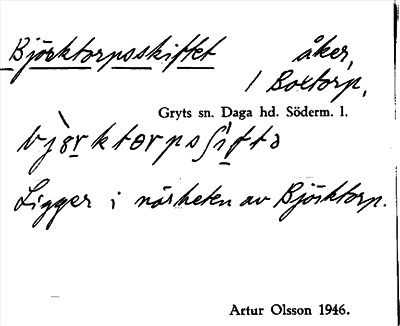 Björktorpsskiftet åker,
1 Boxtorp,
Gryts sn. Daga hd. Söderm. l.
Ligger i närheten av Björktorp.
Artur Olsson 1946.